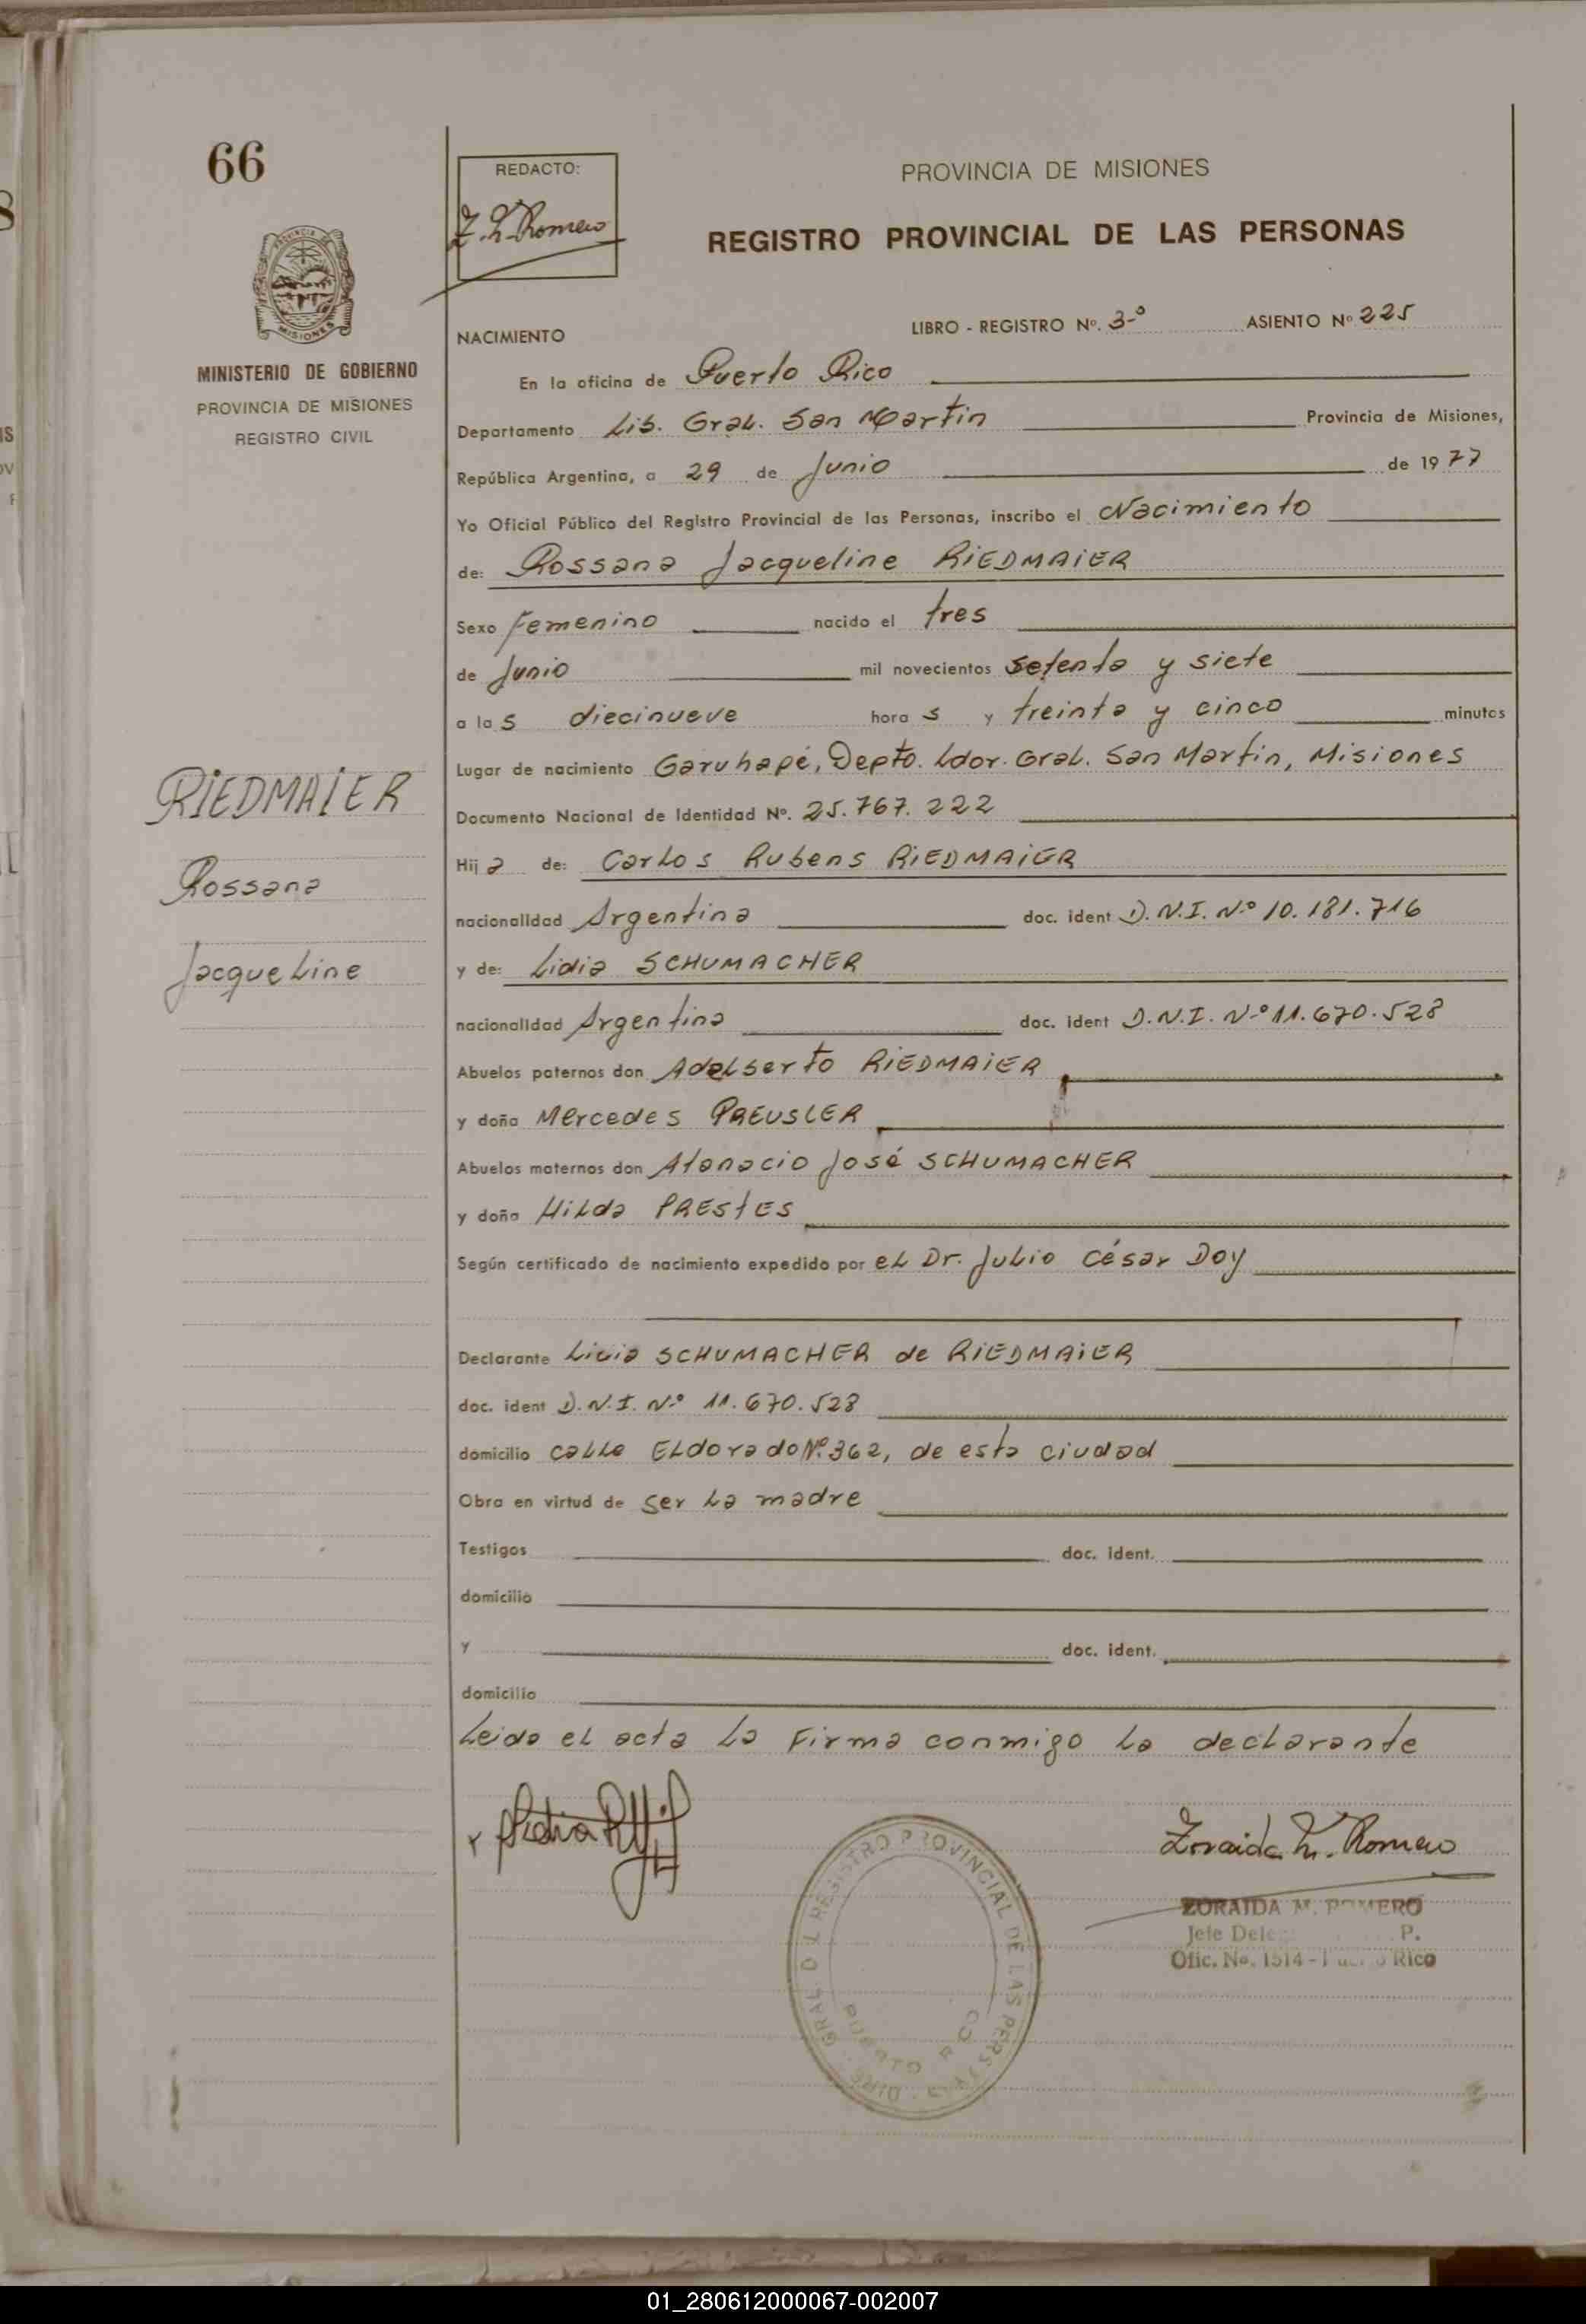 66
REDACTO:
Z. M. Romero
PROVINCIA DE MISIONES
REGISTRO PROVINCIAL DE LAS PERSONAS
MISIONES
MINISTERIO DE GOBIERNO
PROVINCIA DE MISIONES
REGISTRO CIVIL
NACIMIENTO LIBRO - REGISTRO Nº. 3-º ASIENTO Nº 225
En la oficina de Puerto Rico
Departamento Lib. Gral. San Martin Provincia de Misiones,
República Argentina, a 29 de Junio de 1977
Yo Oficial Público del Registro Provincial de las Personas, inscribo el Nacimiento
de: Rossana Jacqueline RIEDMAIER
Sexo Femenino nacido el tres
de Junio mil novecientos setenta y siete
a las diecinueve horas y treinta y cinco minutos
Lugar de nacimiento Garuhapé, Depto. Ldor. Gral. San Martin, Misiones
Documento Nacional de Identidad Nº. 25.767.222
Hija de: Carlos Rubens RIEDMAIER
nacionalidad Argentina doc. ident D.N.I. Nº 10.181.716
y de: Lidia SCHUMACHER
nacionalidad Argentina doc. ident D.N.I. Nº 11.670.528
Abuelos paternos don Adelberto RIEDMAIER
y doña Mercedes PREUSLER
Abuelos maternos don Atanacio José SCHUMACHER
y doña Hilda PRESTES
Según certificado de nacimiento expedido por el Dr. Julio César Doy
Declarante Lidia SCHUMACHER de RIEDMAIER
doc. ident D.N.I. Nº 11.670.528
domicilio calle Eldorado Nº 362, de esta ciudad
Obra en virtud de ser la madre
Testigos doc. ident.
domicilio
y doc. ident.
domicilio
Leida el acta la firma conmigo la declarante
RIEDMAIER
Rossana
Jacqueline
Lidia
Zoraida M. Romero
REGISTRO PROVINCIAL DE LAS PERSONAS
PUERTO RICO
ZORAIDA M. ROMERO
Jefe P.
Ofic. No. 1514 - Puerto Rico
01_280612000067-002007